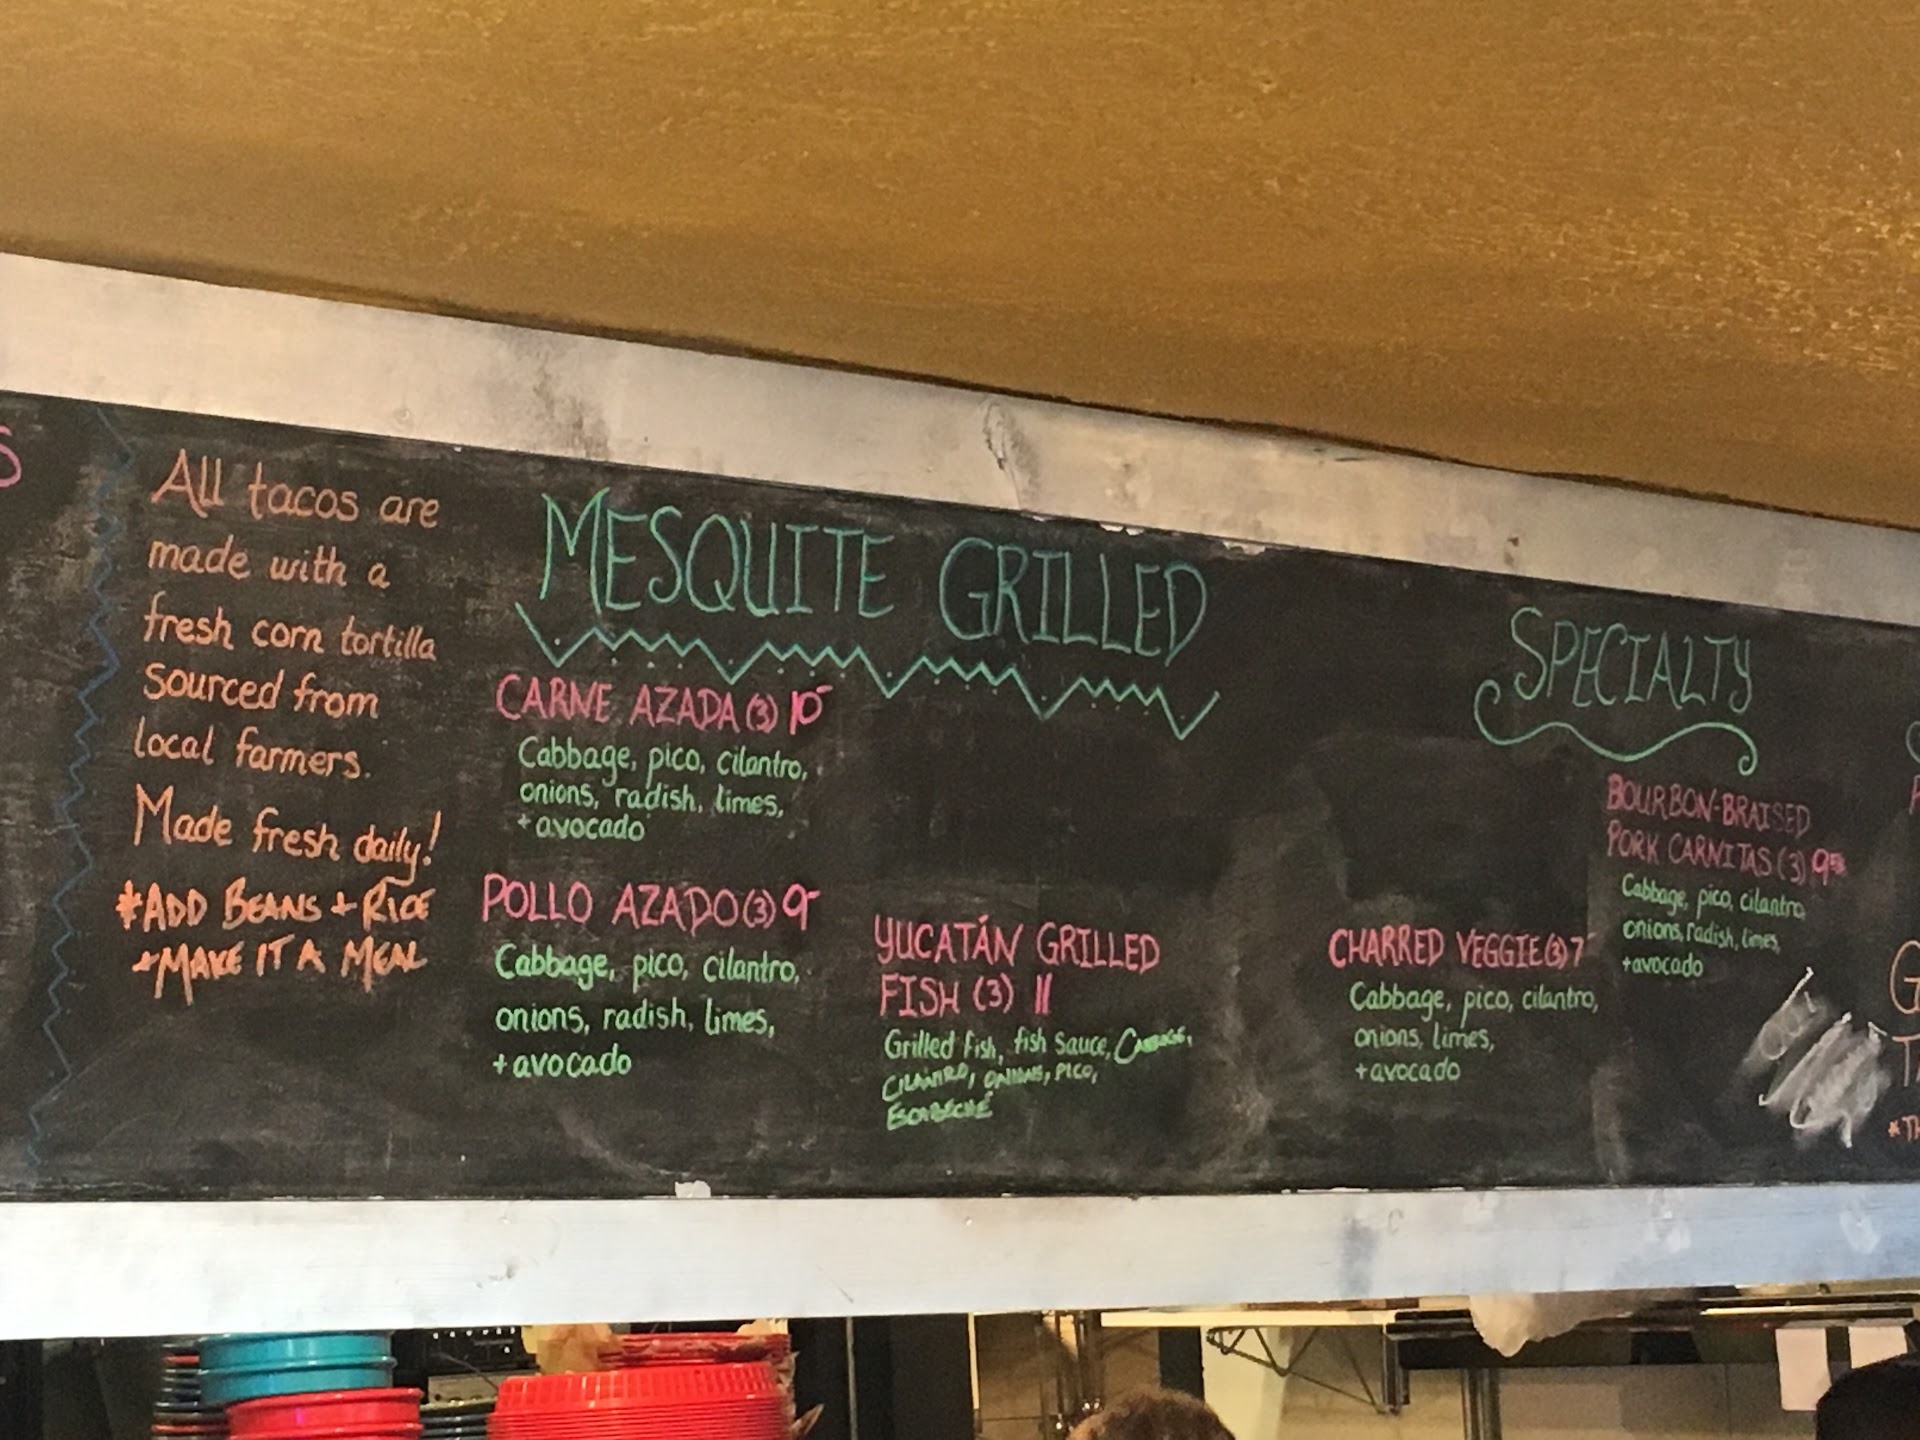 S
All tacos are
made with a
fresh corn tortilla
sourced from
local farmers.
Made fresh daily!
*ADD BEANS + RICE
+MAKE IT A MEAL
MESQUITE GRILLED
CARNE AZADA (3) 10-
Cabbage, pico, cilantro,
onions, radish, limes,
+avocado
POLLO AZADO (3) 9-
Cabbage, pico, cilantro,
onions, radish, limes,
+avocado
YUCATÁN GRILLED
FISH (3) 11
Grilled fish, fish sauce, CABBAGE,
CILANTRO, ONIONS, PICO,
ESCABECHÉ
SPECIALTY
CHARRED VEGGIE (3) 7-
Cabbage, pico, cilantro,
onions, limes,
+avocado
BOURBON-BRAISED
PORK CARNITAS (3) 9
Cabbage, pico, cilantro
onions, radish, limes,
+avocado
G
T
*TH